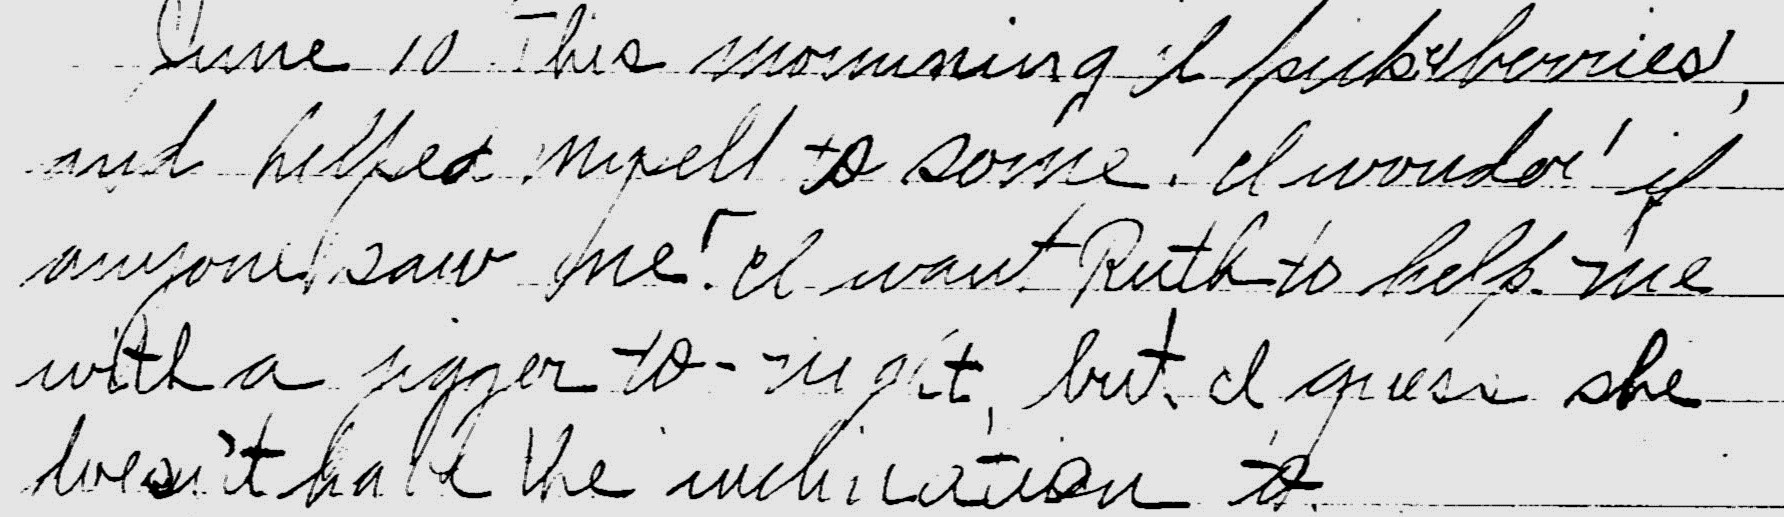 June 10 This morning I pick berries,
and helped myself to some. I wonder if
anyone saw me! I want Ruth to help me
with a jigger to-night, but I guess she
doesn't have the inclination to.